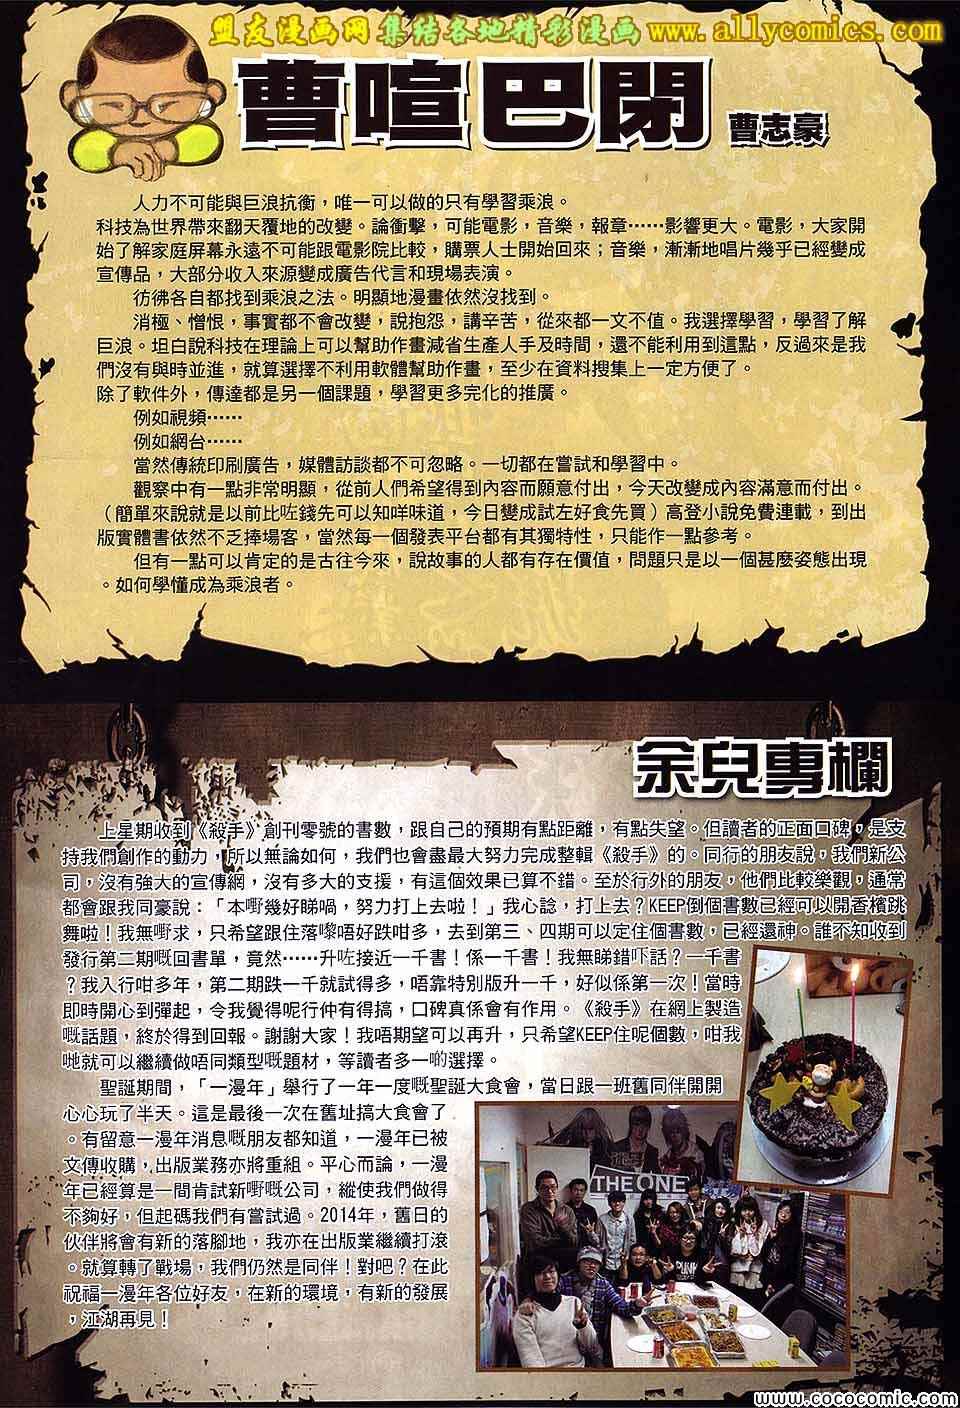 盟友漫画网 集结各地精彩漫画 www.allycomics.com
曹喧巴閉 曹志豪
人力不可能與巨浪抗衡，唯一可以做的只有學習乘浪。
科技為世界帶來翻天覆地的改變。論衝擊，可能電影，音樂，報章⋯⋯影響更大。電影，大家開
始了解家庭屏幕永遠不可能跟電影院比較，購票人士開始回來；音樂，漸漸地唱片幾乎已經變成
宣傳品，大部分收入來源變成廣告代言和現場表演。
彷彿各自都找到乘浪之法。明顯地漫畫依然沒找到。
消極、憎恨，事實都不會改變，說抱怨，講辛苦，從來都一文不值。我選擇學習，學習了解
巨浪。坦白說科技在理論上可以幫助作畫減省生產人手及時間，還不能利用到這點，反過來是我
們沒有與時並進，就算選擇不利用軟體幫助作畫，至少在資料搜集上一定方便了。
除了軟件外，傳達都是另一個課題，學習更多完化的推廣。
例如視頻⋯⋯
例如網台⋯⋯
當然傳統印刷廣告，媒體訪談都不可忽略。一切都在嘗試和學習中。
觀察中有一點非常明顯，從前人們希望得到內容而願意付出，今天改變成內容滿意而付出。
（簡單來說就是以前比咗錢先可以知咩味道，今日變成試左好食先買）高登小說免費連載，到出
版實體書依然不乏捧場客，當然每一個發表平台都有其獨特性，只能作一點參考。
但有一點可以肯定的是古往今來，說故事的人都有存在價值，問題只是以一個甚麼姿態出現
。如何學懂成為乘浪者。
余兒專欄
上星期收到《殺手》創刊零號的書數，跟自己的預期有點距離，有點失望。但讀者的正面口碑，是支
持我們創作的動力，所以無論如何，我們也會盡最大努力完成整輯《殺手》的。同行的朋友說，我們新公
司，沒有強大的宣傳網，沒有多大的支援，有這個效果已算不錯。至於行外的朋友，他們比較樂觀，通常
都會跟我同豪說：「本嘢幾好睇喎，努力打上去啦！」我心諗，打上去？KEEP倒個書數已經可以開香檳跳
舞啦！我無嘢求，只希望跟住落嚟唔好跌咁多，去到第三、四期可以定住個書數，已經還神。誰不知收到
發行第二期嘅回書單，竟然⋯⋯升咗接近一千書！係一千書！我無睇錯吓話？一千書
？我入行咁多年，第二期跌一千就試得多，唔靠特別版升一千，好似係第一次！當時
即時開心到彈起，令我覺得呢行仲有得搞，口碑真係會有作用。《殺手》在網上製造
嘅話題，終於得到回報。謝謝大家！我唔期望可以再升，只希望KEEP住呢個數，咁我
哋就可以繼續做唔同類型嘅題材，等讀者多一啲選擇。
聖誕期間，「一漫年」舉行了一年一度嘅聖誕大食會，當日跟一班舊同伴開開
心心玩了半天。這是最後一次在舊址搞大食會了
。有留意一漫年消息嘅朋友都知道，一漫年已被
文傳收購，出版業務亦將重組。平心而論，一漫
年已經算是一間肯試新嘢嘅公司，縱使我們做得
不夠好，但起碼我們有嘗試過。2014年，舊日的
伙伴將會有新的落腳地，我亦在出版業繼續打滾
。就算轉了戰場，我們仍然是同伴！對吧？在此
祝福一漫年各位好友，在新的環境，有新的發展
，江湖再見！
THE ONE
PUNK
www.cococomic.com